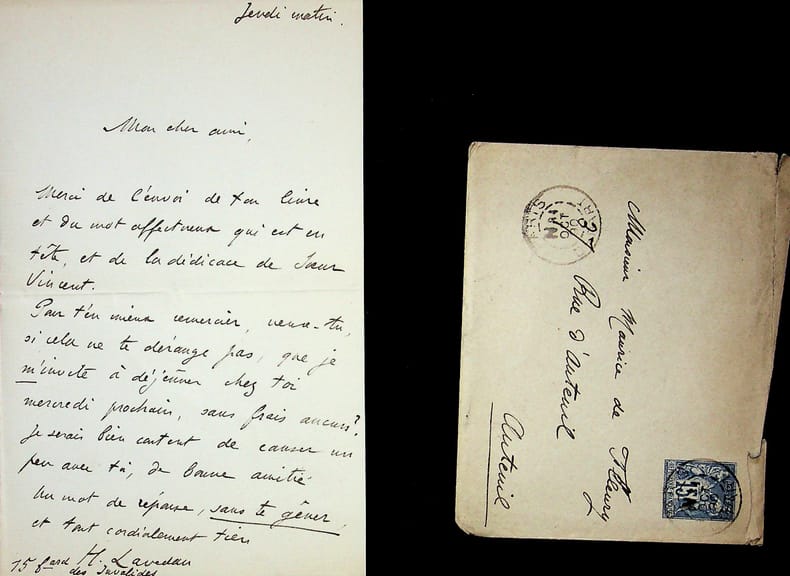 Jeudi matin.
Mon cher ami,
Merci de l'envoi de ton livre
et du mot affectueux qui est en
tête, et de la dédicace de Sœur
Vincent.
Pour t'en mieux remercier, veux-tu,
si cela ne te dérange pas, que je
m'invite à déjeuner chez toi
mercredi prochain, sans frais aucuns?
Je serais bien content de causer un
peu avec toi, de bonne amitié.
Un mot de réponse, sans te gêner,
et tout cordialement tien
H. Lavedan
15 Bard des Invalides
Monsieur Maurice de Fleury
Rue d'Auteuil
Auteuil
PARIS